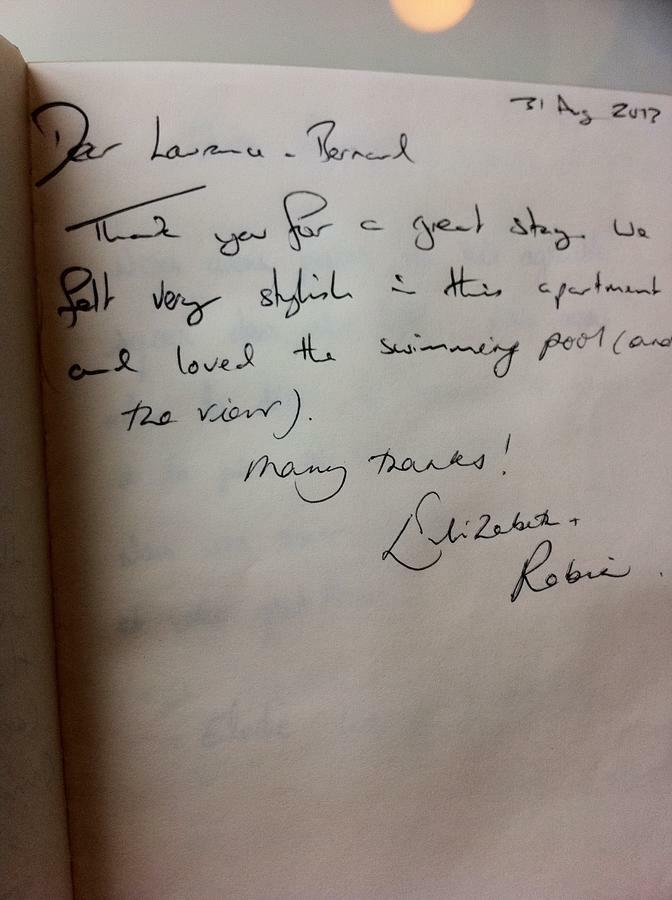 31 Aug 2013
Dear Laurence - Bernard
Thank you for a great stay. We
felt very stylish in this apartment
and loved the swimming pool (and
the view).
Many thanks!
Elizabeth +
Robin.